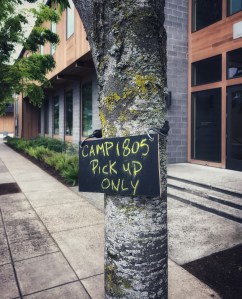 CAMP 1805
PicK UP
ONLY